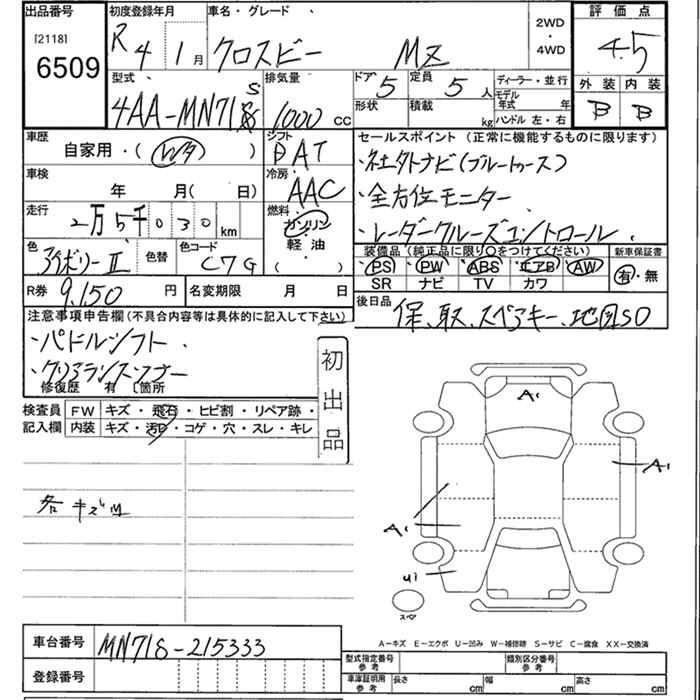 出品番号
[2118]
6509
初度登録年月
R 4年 1月
車名・グレード
クロスビー MZ
2WD
・
4WD
評価点
4.5
外装 内装
B B
型式
4AA-MN71S
排気量
1000 cc
ドア 5
定員 5人
形状
積載 kg
ディーラー・並行
モデル年式 年
ハンドル 左・右
車歴
自家用・( )
シフト
DAT
車検
年 月( 日)
冷房
AAC
走行
2万5千030 km
燃料
ガソリン
軽油
( )
色
アイボリーⅡ
色替
色コード
C7G
R券 9,150円
名変期限 月 日
セールスポイント (正常に機能するものに限ります)
・社外ナビ(ブルートゥース)
・全方位モニター
・レーダークルーズコントロール
装備品 (純正品に限り○をつけてください)
PS PW ABS エアB AW
SR ナビ TV カワ
新車保証書
有・無
後日品
保、取、スペアキー、地図SD
注意事項申告欄(不具合内容等は具体的に記入して下さい)
・パドルシフト
・クリアランスソナー
修復歴 有 〔箇所
初出品
検査員記入欄
FW キズ・飛石・ヒビ割・リペア跡・
内装 キズ・汚れ・コゲ・穴・スレ・キレ
各キズ凹
A1
A1
A1
U1
スペア
A-キズ E-エクボ U-凹み W-補修跡 S-サビ C-腐食 XX-交換済
車台番号 MN71S-215333
登録番号
型式指定番号 参考
類別区分番号 参考
車庫証明用 参考
長さ cm 幅 cm 高さ cm